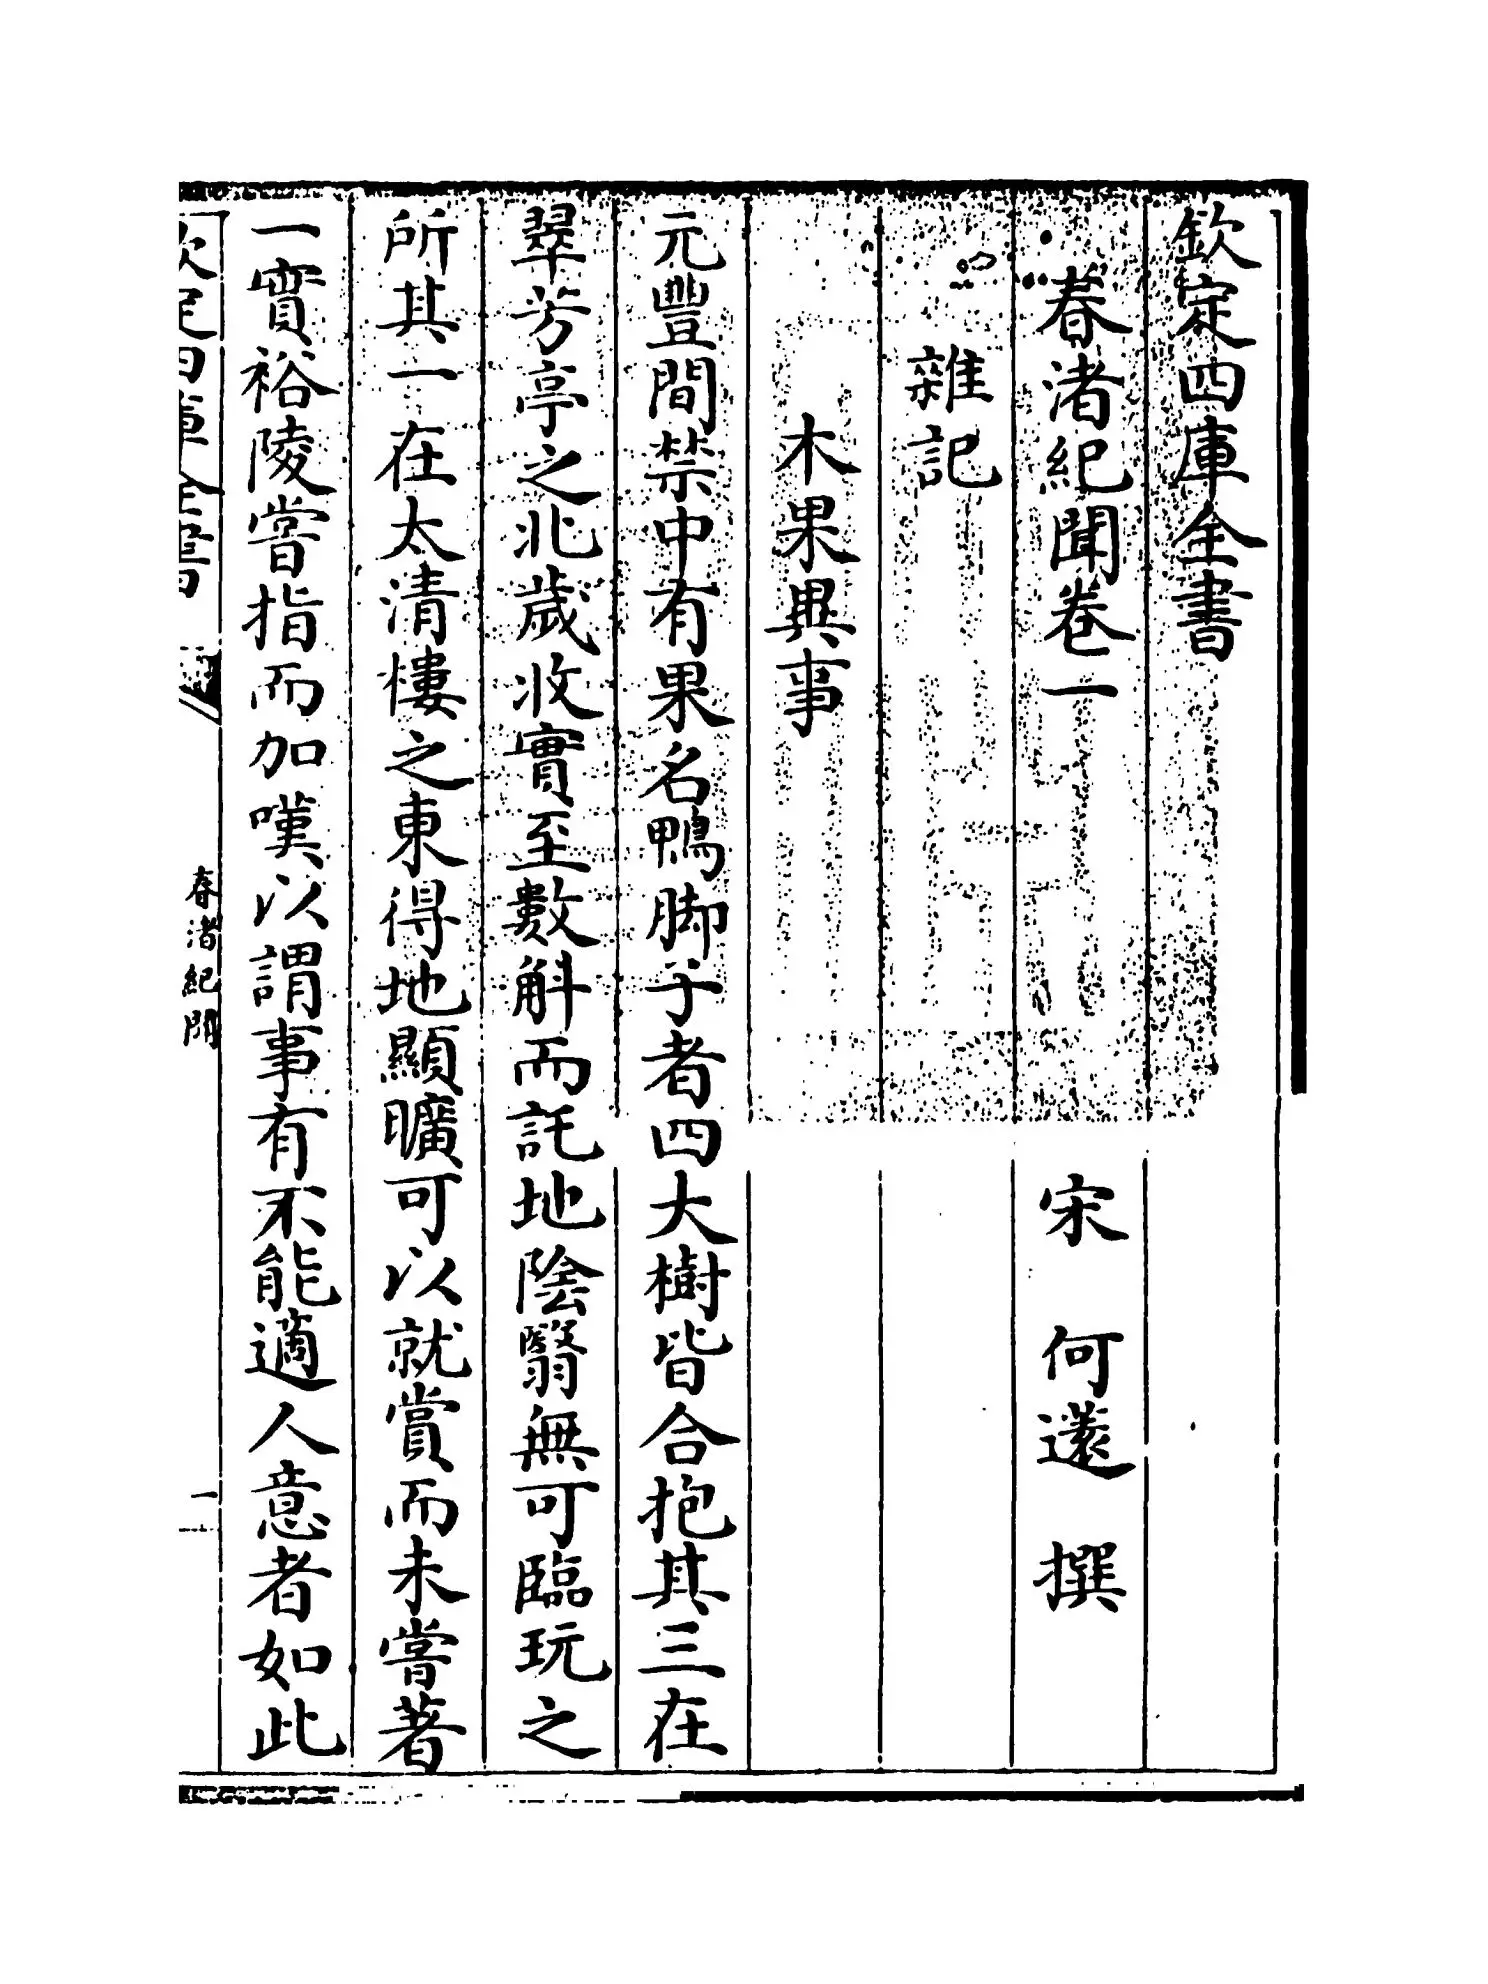 欽定四庫全書
春渚紀聞卷一 宋 何薳 撰
雜記
木果異事
元豐間禁中有果名鴨脚子者四大樹皆合抱其三在
翠芳亭之北歲收實至數斛而託地陰翳無可臨玩之
所其一在太清樓之東得地顯曠可以就賞而未嘗著
一實裕陵嘗指而加嘆以謂事有不能適人意者如此
欽定四庫全書
春渚紀聞
一